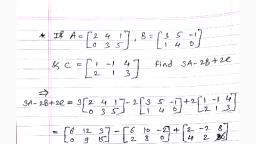 * If A = [2 4 1 / 0 3 5], B = [3 5 -1 / 1 4 0]
& C = [1 -1 4 / 2 1 3] Find 3A-2B+2C
⇒
3A-2B+2C = 3[2 4 1 / 0 3 5] - 2[3 5 -1 / 1 4 0] + 2[1 -1 4 / 2 1 3]
= [6 12 3 / 0 9 15] - [6 10 -2 / 2 8 0] + [2 -2 8 / 4 2 6]